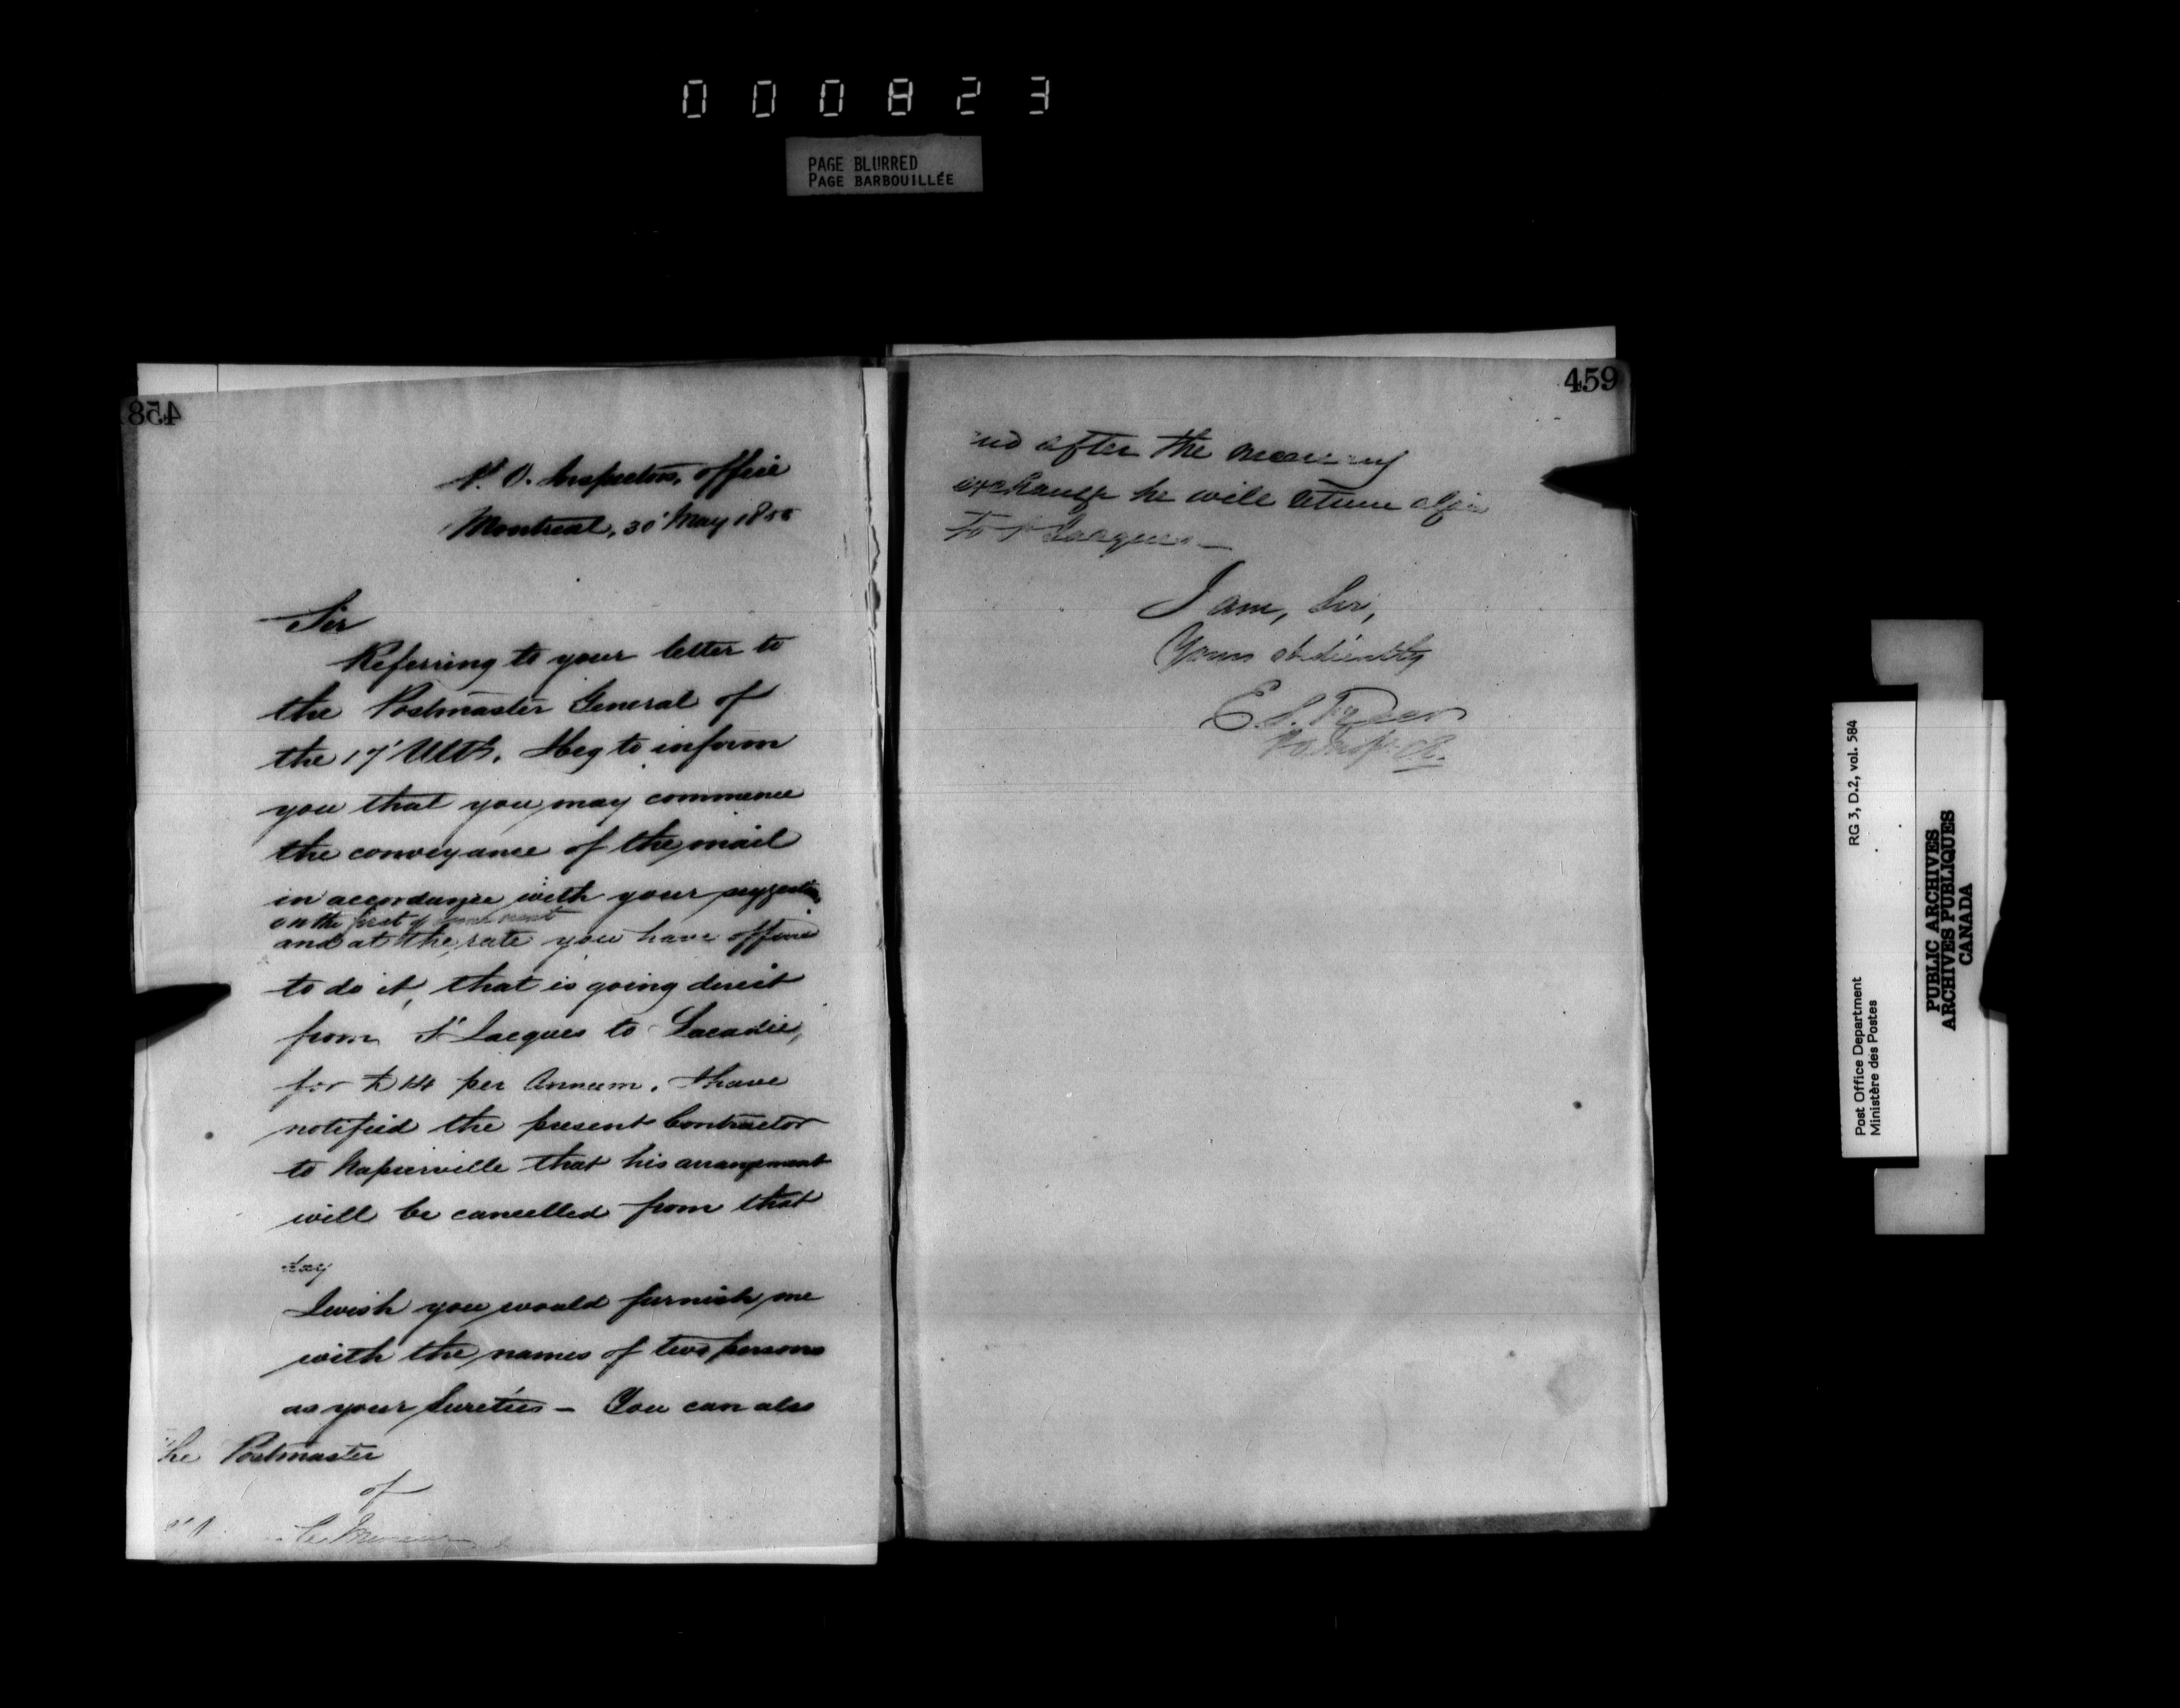 000823
PAGE BLURRED
PAGE BARBOUILLÉE
458
P. O. Inspectors, office
Montreal, 30 May 18
Sir
Referring to your letter to
the Postmaster General of
the 17 Ulto. I beg to inform
you that you may commence
the conveyance of the mail
in accordance with your suggestion
on the first of
and at the rate you have offered
to do it, that is going direct
from St Jacques to Lacadie,
for £14 per Annum. I have
notified the present Contractor
to Napierville that his arrangement
will be cancelled from that
day
I wish you would furnish me
with the names of two persons
as your Sureties - You can also
The Postmaster
of
459
and after the
exchange he will return
to St Jacques -
I am, Sir,
Yours obediently
E. S. Freer
P.O. Inspector.
RG 3, D.2, vol. 584
Post Office Department
Ministère des Postes
PUBLIC ARCHIVES
ARCHIVES PUBLIQUES
CANADA